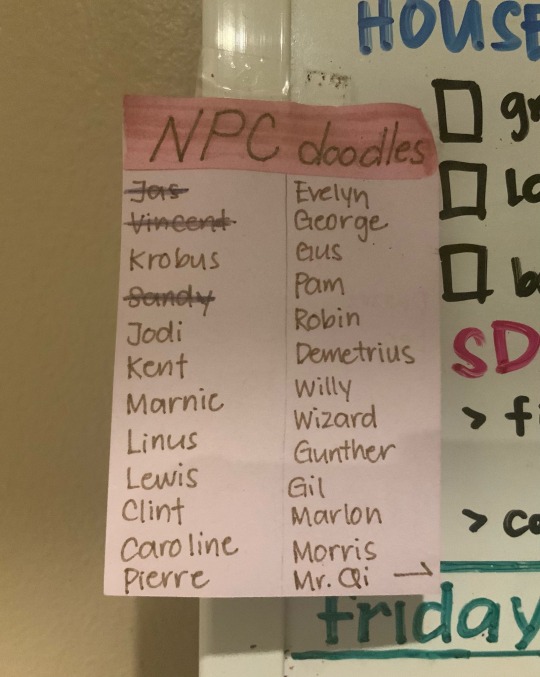 HOUSE
NPC doodles
Jas
Vincent
Krobus
Sandy
Jodi
Kent
Marnie
Linus
Lewis
Clint
Caroline
Pierre
Evelyn
George
Gus
Pam
Robin
Demetrius
Willy
Wizard
Gunther
Gil
Marlon
Morris
Mr. Qi →
SD
friday